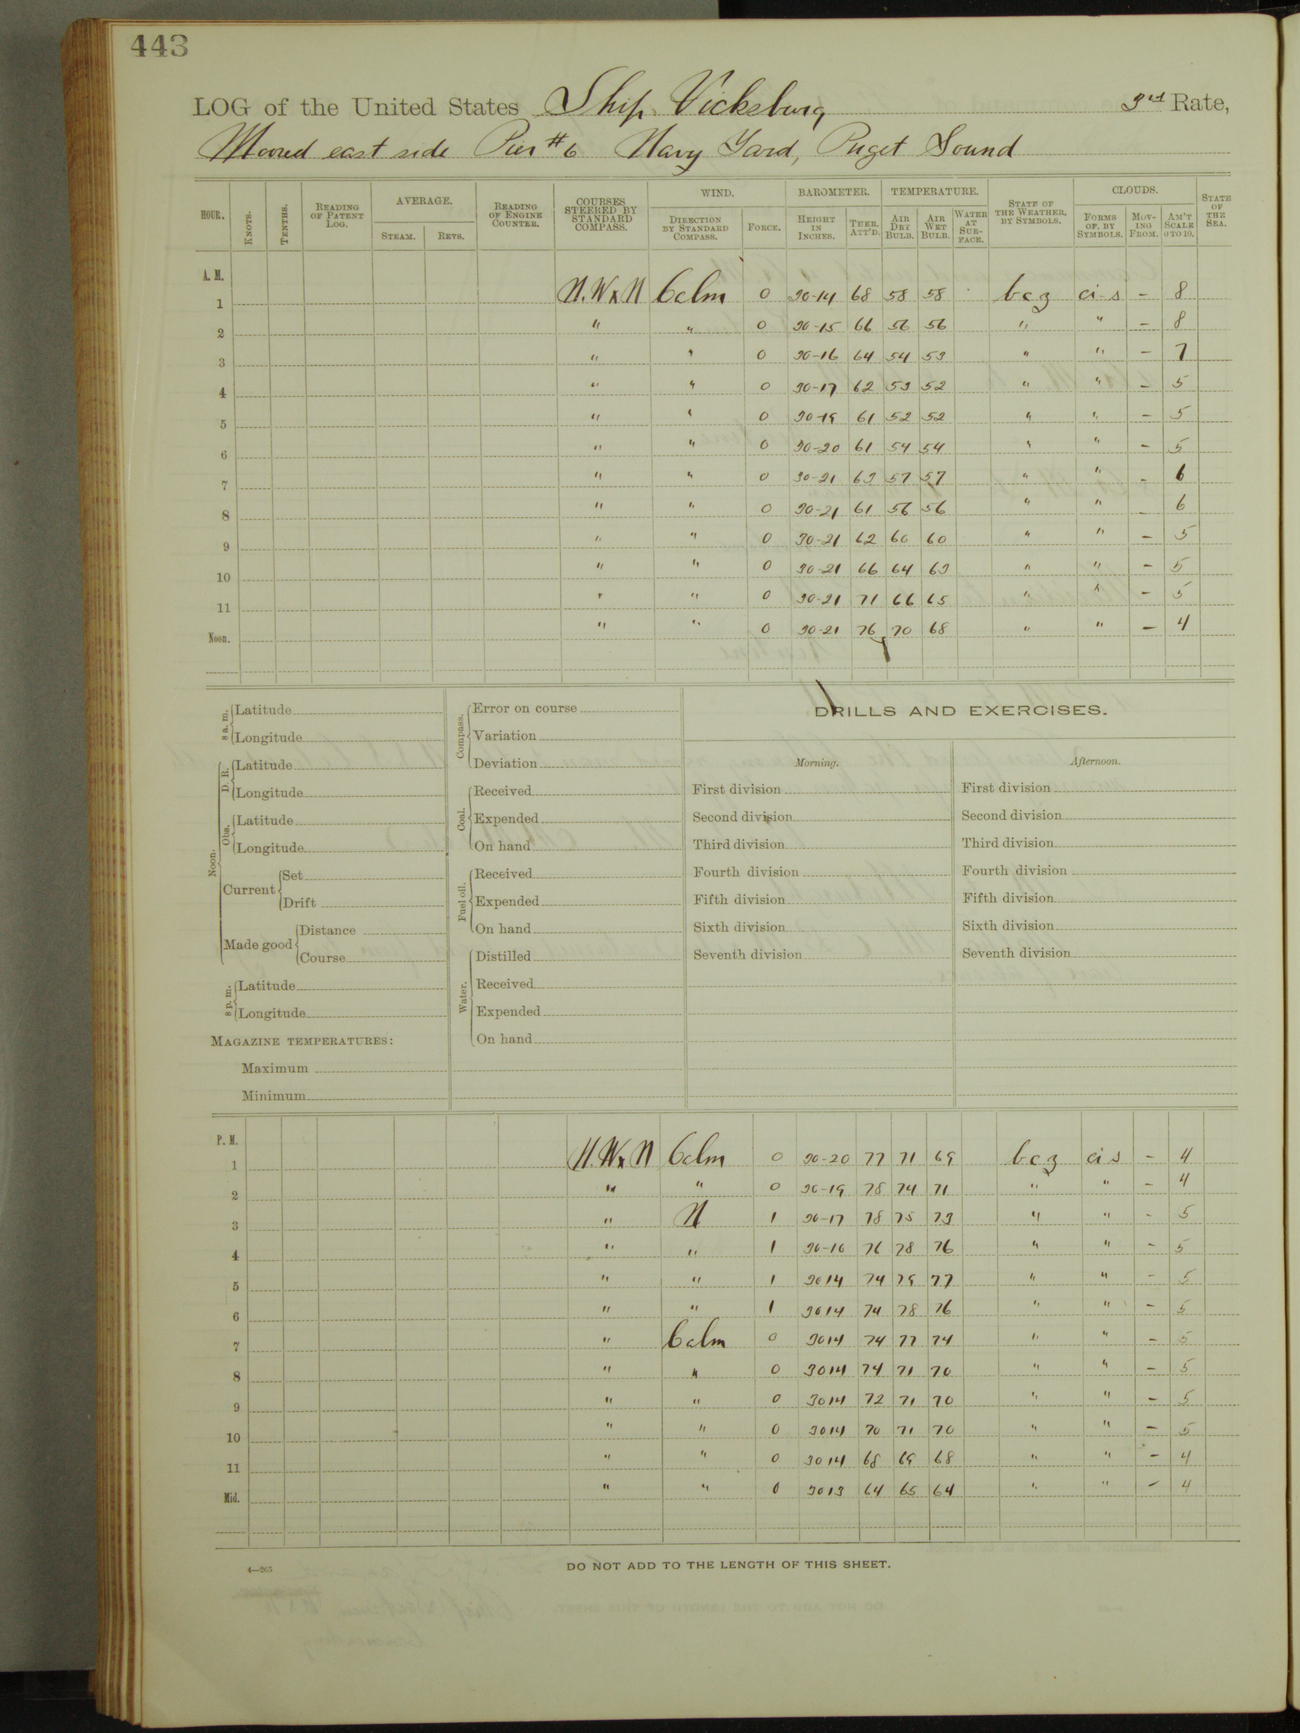 443
LOG of the United States Ship Vicksburg, 3rd Rate,
Moored east side Pier #6 Navy Yard, Puget Sound
HOUR. KNOTS. TENTHS. READING OF PATENT LOG. AVERAGE. STEAM. REVS. READING OF ENGINE COUNTER. COURSES STEERED BY STANDARD COMPASS. WIND. DIRECTION BY STANDARD COMPASS. FORCE. BAROMETER. HEIGHT IN INCHES. THER. ATT'D. TEMPERATURE. AIR DRY BULB. AIR WET BULB. WATER AT SURFACE. STATE OF THE WEATHER, BY SYMBOLS. CLOUDS. FORMS OF, BY SYMBOLS. MOVING FROM. AM'T SCALE 0 TO 10. STATE OF THE SEA.
A. M.
1 N.WxN Calm 0 30-14 68 58 58 bcz ci-s - 8
2 " " 0 30-15 66 56 56 " " - 8
3 " " 0 30-16 64 54 53 " " - 7
4 " " 0 30-17 62 53 52 " " - 5
5 " " 0 30-19 61 52 52 " " - 5
6 " " 0 30-20 61 54 54 " " - 5
7 " " 0 30-21 63 57 57 " " - 6
8 " " 0 30-21 61 56 56 " " - 6
9 " " 0 30-21 62 60 60 " " - 5
10 " " 0 30-21 66 64 63 " " - 5
11 " " 0 30-21 71 66 65 " " - 5
Noon. " " 0 30-21 76 70 68 " " - 4
8 a. m. Latitude
Longitude
Noon. D. R. Latitude
Longitude
Obs. Latitude
Longitude
Current Set
Drift
Made good Distance
Course
8 p. m. Latitude
Longitude
MAGAZINE TEMPERATURES:
Maximum
Minimum
Compass. Error on course
Variation
Deviation
Coal. Received
Expended
On hand
Fuel oil. Received
Expended
On hand
Water. Distilled
Received
Expended
On hand
DRILLS AND EXERCISES.
Morning.
First division
Second division
Third division
Fourth division
Fifth division
Sixth division
Seventh division
Afternoon.
First division
Second division
Third division
Fourth division
Fifth division
Sixth division
Seventh division
P. M.
1 N.WxN Calm 0 30-20 77 71 69 bcz ci s - 4
2 " " 0 30-19 78 74 71 " " - 4
3 " N 1 30-17 78 75 73 " " - 5
4 " " 1 30-16 76 78 76 " " - 5
5 " " 1 3014 74 79 77 " " - 5
6 " " 1 3014 74 78 76 " " - 5
7 " Calm 0 3014 74 77 74 " " - 5
8 " " 0 3014 74 71 70 " " - 5
9 " " 0 3014 72 71 70 " " - 5
10 " " 0 3014 70 71 70 " " - 5
11 " " 0 3014 68 69 68 " " - 4
Mid. " " 0 3013 64 65 64 " " - 4
4—265
DO NOT ADD TO THE LENGTH OF THIS SHEET.